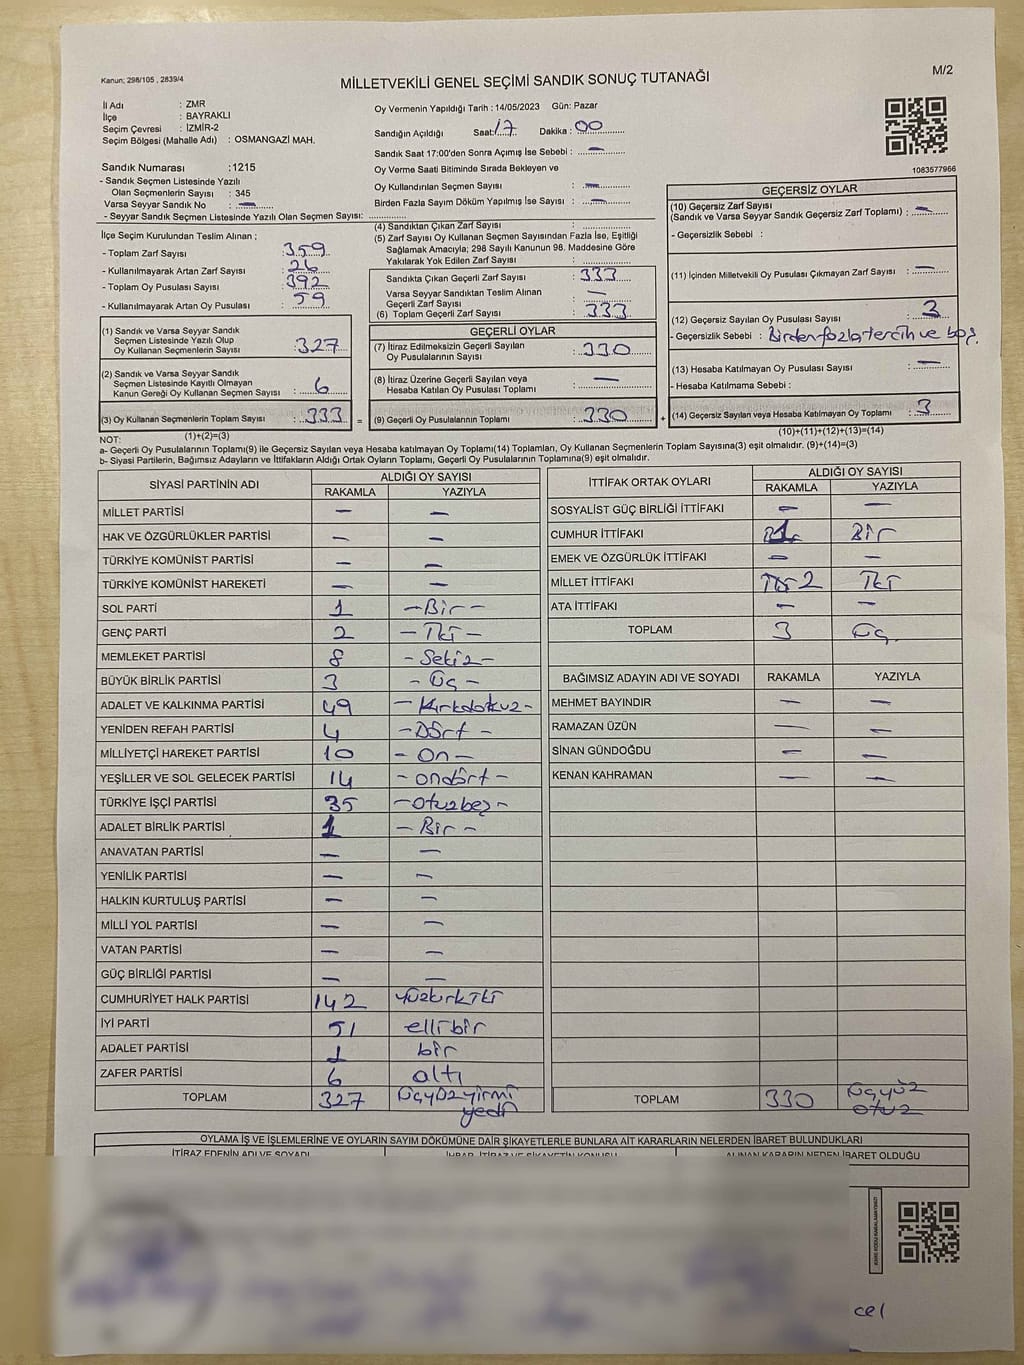 Kanun; 298/105 , 2839/4
MİLLETVEKİLİ GENEL SEÇİMİ SANDIK SONUÇ TUTANAĞI
M/2
İl Adı : ZMR
İlçe : BAYRAKLI
Seçim Çevresi : İZMİR-2
Seçim Bölgesi (Mahalle Adı) : OSMANGAZİ MAH.
Oy Vermenin Yapıldığı Tarih : 14/05/2023 Gün: Pazar
Sandığın Açıldığı Saat: 17 Dakika : 00
Sandık Saat 17:00'den Sonra Açımış İse Sebebi : —
Oy Verme Saati Bitiminde Sırada Bekleyen ve
Oy Kullandırılan Seçmen Sayısı : —
Birden Fazla Sayım Döküm Yapılmış İse Sayısı : —
1083577966
Sandık Numarası :1215
- Sandık Seçmen Listesinde Yazılı
Olan Seçmenlerin Sayısı : 345
Varsa Seyyar Sandık No : —
- Seyyar Sandık Seçmen Listesinde Yazılı Olan Seçmen Sayısı:
İlçe Seçim Kurulundan Teslim Alınan ;
- Toplam Zarf Sayısı : 359
- Kullanılmayarak Artan Zarf Sayısı : 26
- Toplam Oy Pusulası Sayısı : 392
- Kullanılmayarak Artan Oy Pusulası : 59
(1) Sandık ve Varsa Seyyar Sandık
Seçmen Listesinde Yazılı Olup
Oy Kullanan Seçmenlerin Sayısı : 327
(2) Sandık ve Varsa Seyyar Sandık
Seçmen Listesinde Kayıtlı Olmayan
Kanun Gereği Oy Kullanan Seçmen Sayısı : 6
(3) Oy Kullanan Seçmenlerin Toplam Sayısı : 333
(1)+(2)=(3)
(4) Sandıktan Çıkan Zarf Sayısı :
(5) Zarf Sayısı Oy Kullanan Seçmen Sayısından Fazla İse, Eşitliği
Sağlamak Amacıyla; 298 Sayılı Kanunun 98. Maddesine Göre
Yakılarak Yok Edilen Zarf Sayısı :
Sandıkta Çıkan Geçerli Zarf Sayısı : 333
Varsa Seyyar Sandıktan Teslim Alınan
Geçerli Zarf Sayısı : —
(6) Toplam Geçerli Zarf Sayısı : 333
GEÇERLİ OYLAR
(7) İtiraz Edilmeksizin Geçerli Sayılan
Oy Pusulalarının Sayısı : 330
(8) İtiraz Üzerine Geçerli Sayılan veya
Hesaba Katılan Oy Pusulası Toplamı : —
= (9) Geçerli Oy Pusulalarının Toplamı : 330 +
GEÇERSİZ OYLAR
(10) Geçersiz Zarf Sayısı
(Sandık ve Varsa Seyyar Sandık Geçersiz Zarf Toplamı) : —
- Geçersizlik Sebebi :
(11) İçinden Milletvekili Oy Pusulası Çıkmayan Zarf Sayısı : —
(12) Geçersiz Sayılan Oy Pusulası Sayısı : 3
- Geçersizlik Sebebi : Birden fazla tercih ve boş.
(13) Hesaba Katılmayan Oy Pusulası Sayısı : —
- Hesaba Katılmama Sebebi :
(14) Geçersiz Sayılan veya Hesaba Katılmayan Oy Toplamı : 3
(10)+(11)+(12)+(13)=(14)
NOT:
a- Geçerli Oy Pusulalarının Toplamı(9) ile Geçersiz Sayılan veya Hesaba katılmayan Oy Toplamı(14) Toplamları, Oy Kullanan Seçmenlerin Toplam Sayısına(3) eşit olmalıdır. (9)+(14)=(3)
b- Siyasi Partilerin, Bağımsız Adayların ve İttifakların Aldığı Ortak Oyların Toplamı, Geçerli Oy Pusulalarının Toplamına(9) eşit olmalıdır.
SİYASİ PARTİNİN ADI ALDIĞI OY SAYISI
RAKAMLA YAZIYLA
MİLLET PARTİSİ — —
HAK VE ÖZGÜRLÜKLER PARTİSİ — —
TÜRKİYE KOMÜNİST PARTİSİ — —
TÜRKİYE KOMÜNİST HAREKETİ — —
SOL PARTİ 1 — Bir —
GENÇ PARTİ 2 — İki —
MEMLEKET PARTİSİ 8 — Sekiz —
BÜYÜK BİRLİK PARTİSİ 3 — Üç —
ADALET VE KALKINMA PARTİSİ 49 — Kırkdokuz —
YENİDEN REFAH PARTİSİ 4 — Dört —
MİLLİYETÇİ HAREKET PARTİSİ 10 — On —
YEŞİLLER VE SOL GELECEK PARTİSİ 14 — ondört —
TÜRKİYE İŞÇİ PARTİSİ 35 — otuzbeş —
ADALET BİRLİK PARTİSİ 1 — Bir —
ANAVATAN PARTİSİ — —
YENİLİK PARTİSİ — —
HALKIN KURTULUŞ PARTİSİ — —
MİLLİ YOL PARTİSİ — —
VATAN PARTİSİ — —
GÜÇ BİRLİĞİ PARTİSİ — —
CUMHURİYET HALK PARTİSİ 142 Yüzkırkİki
İYİ PARTİ 51 ellibir
ADALET PARTİSİ 1 bir
ZAFER PARTİSİ 6 altı
TOPLAM 327 Üçyüzyirmi
yedi
İTTİFAK ORTAK OYLARI ALDIĞI OY SAYISI
RAKAMLA YAZIYLA
SOSYALİST GÜÇ BİRLİĞİ İTTİFAKI — —
CUMHUR İTTİFAKI 1 Bir
EMEK VE ÖZGÜRLÜK İTTİFAKI — —
MİLLET İTTİFAKI 2 İki
ATA İTTİFAKI — —
TOPLAM 3 Üç
BAĞIMSIZ ADAYIN ADI VE SOYADI RAKAMLA YAZIYLA
MEHMET BAYINDIR — —
RAMAZAN ÜZÜN — —
SİNAN GÜNDOĞDU — —
KENAN KAHRAMAN — —
TOPLAM 330 Üçyüz
otuz
OYLAMA İŞ VE İŞLEMLERİNE VE OYLARIN SAYIM DÖKÜMÜNE DAİR ŞİKAYETLERLE BUNLARA AİT KARARLARIN NELERDEN İBARET BULUNDUKLARI
İTİRAZ EDENİN ADI VE SOYADI İHBAR, İTİRAZ VE ŞİKAYETİN KONUSU ALINAN KARARIN NEDEN İBARET OLDUĞU
cel